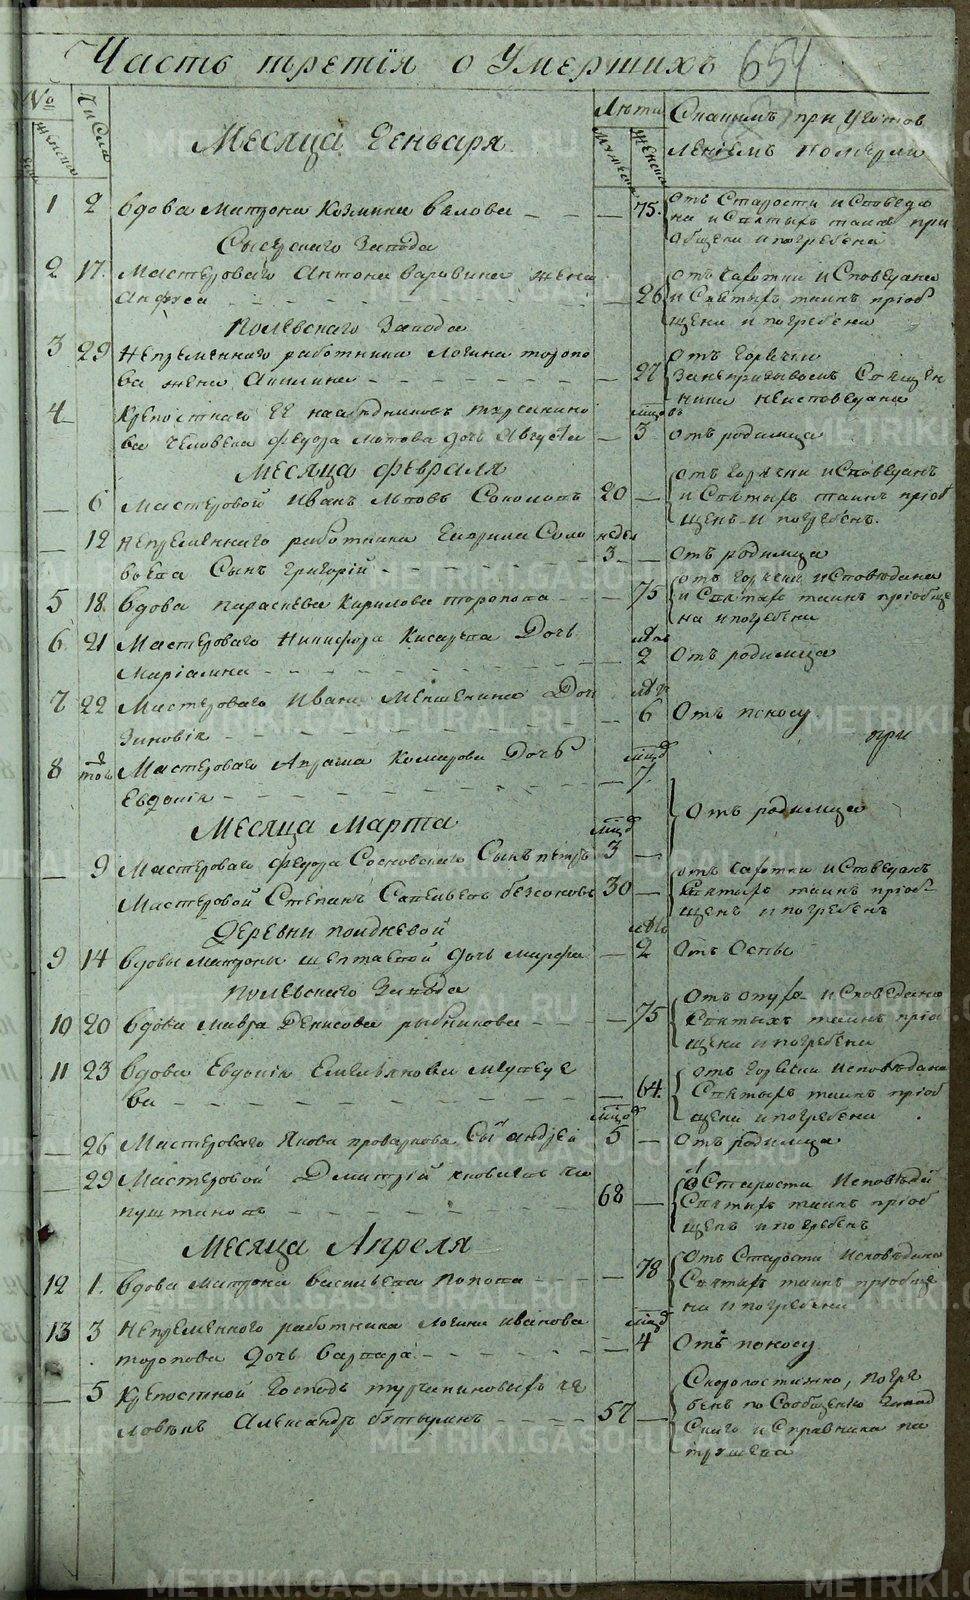 Часть третїя о Умершихъ 654
№ Числа Лета Скакимъ при уготов
женска мужеска женска
Месяца Генваря
ленїемъ померли
1 2 вдова матрона Козмина Белова — 75. отъ Старости исповеда
на и святыхъ таинъ при
общена и погребена
Сысерскаго Завода
2 17. Мастероваго Антона Варавина жена
Анфиса — 26 отъ чахотки исповедана
и святыхъ таинъ прїоб
щена и погребена
Полевскаго Завода
3 29 непременнаго работника Логина торопо
ва жена Акилина — 27 отъ горячки
священ
ники неисповедана
4 Крепостнаго ее наследниковъ турчанино
ва человека Федора дочь Августа — мцовъ 3 отъ родимца
Месяца Февраля
— 6 Мастеровой Иванъ Львовъ Соколовъ 20 — отъ горячки исповеданъ
и святыхъ таинъ прїоб
щенъ и погребенъ.
— 12 непременнаго работника Гаврила Соло недел
вьева Сынъ григорїй — 3 — отъ родимца
5 18. вдова параскева Кирилова торопова — 75 отъ горячки исповедана
и святыхъ таинъ прїобще
на и погребена
6. 21 Мастероваго Никифора Кисарева Дочь
Марїамна — летъ 2 отъ родимца
7 22 Мастероваго Ивана Меншенина Доч
Зиновїя — летъ 6 отъ поносу
при
8 тогъ Мастероваго Комарова Дочь
Евдокїя — мцъ 7. отъ родимца
Месяца Марта
— 9 Мастероваго Федора Сосновскаго Сынъ петръ мцъ 3 —
Мастеровой Степанъ Савельевъ безсоновъ 30 — отъ чахотки исповеданъ
святыхъ таинъ прїоб-
щенъ и погребенъ
Деревни полдневой
9 14 вдовы матроны дочь марфа — летъ 2 отъ Оспы
полевскаго Завода
10 20 вдова Мавра Денисова рыбникова — 75 отъ опуха исповедана
святыхъ таинъ прїоб
щена и погребена
11 23 вдова Евдокїя Емельянова
ва — 64. отъ горячки исповедана
святыхъ таинъ прїоб
щена и погребена
— 26 Мастероваго Якова проваркова Сынъ андрей мцовъ 5 — отъ родимца
— 29 Мастеровой Димитрїй яковлевъ ка
пустинъ — 68 — Старости исповеданъ
святыхъ таинъ прїоб
щенъ и погребенъ
Месяца Апреля
12 1. вдова матрона васильева попова — 78 отъ Старости исповедана
святыхъ таинъ прїобще
на и погребена
13 3 непременнаго работника Логина иванова
торопова дочь варвара — мцъ 4 отъ поносу
— 5 Крепостной господъ турчаниновыхъ че
ловекъ Александръ 57 — Скоропостижно, погре
бенъ по Сообщенїю
исправника
METRIKI.GASO-URAL.RU